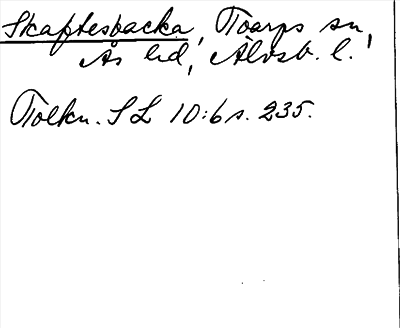 Skaftesbacka, Toarps sn,
Ås hd, Älvsb. l.
Tolkn. SL 10:6 s. 235.